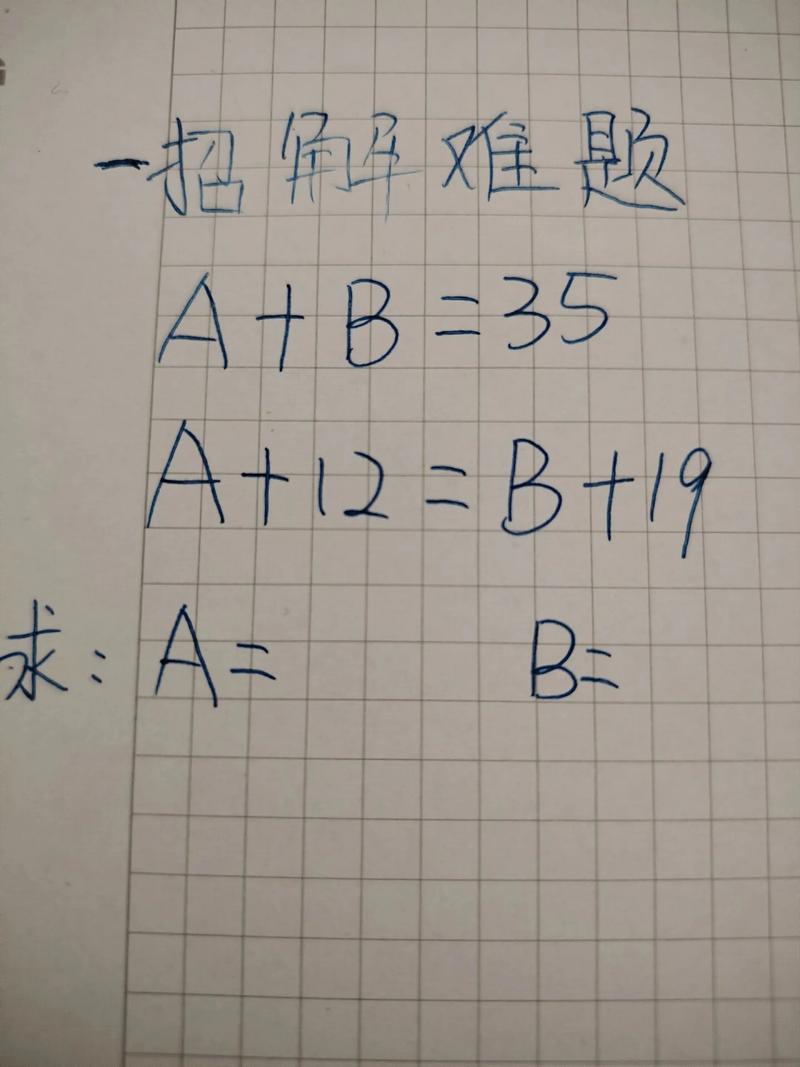 一招解难题
A+B=35
A+12=B+19
求: A= B=